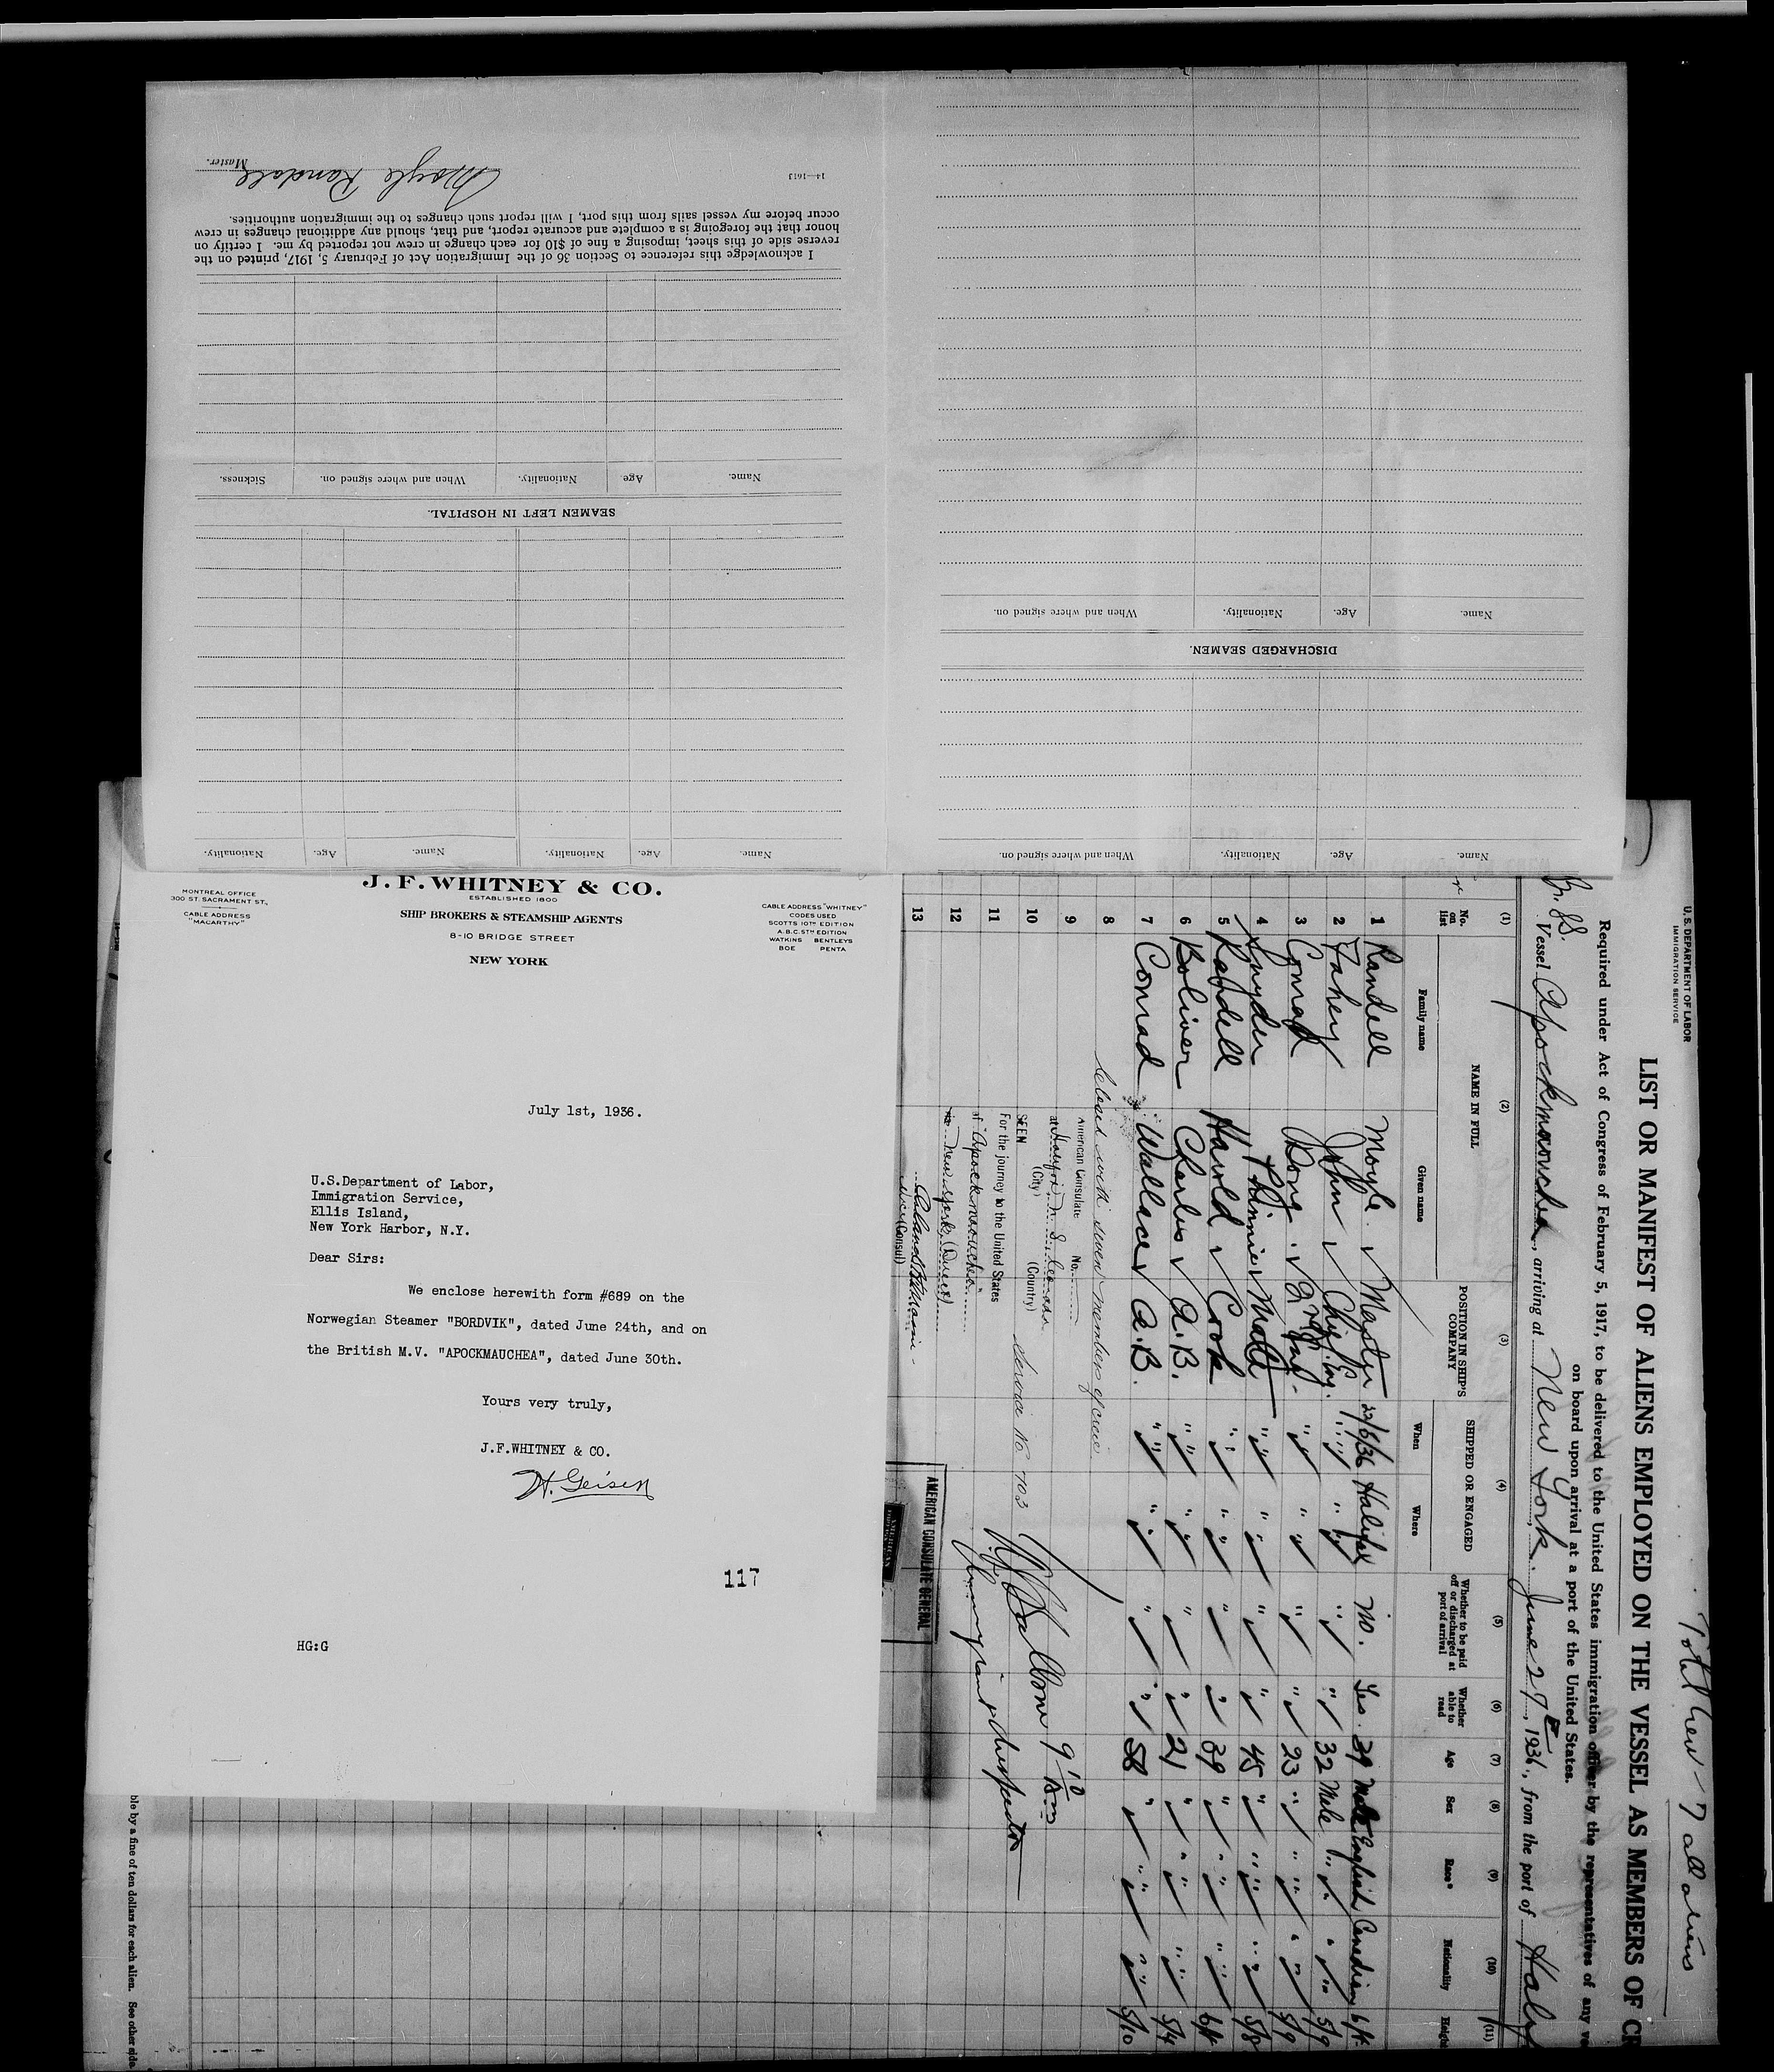 Moyle Randall
Master.
14—1613
I acknowledge this reference to Section 36 of the Immigration Act of February 5, 1917, printed on the
reverse side of this sheet, imposing a fine of $10 for each change in crew not reported by me. I certify on
honor that the foregoing is a complete and accurate report, and that, should any additional changes in crew
occur before my vessel sails from this port, I will report such changes to the immigration authorities.
Name. Age. Nationality. When and where signed on. Sickness.
SEAMEN LEFT IN HOSPITAL.
Name. Age. Nationality. Name. Age. Nationality.
Name. Age. Nationality. When and where signed on.
DISCHARGED SEAMEN.
Name. Age. Nationality. When and where signed on.
MONTREAL OFFICE
300 ST. SACRAMENT ST.,
CABLE ADDRESS
"MACARTHY"
J. F. WHITNEY & CO.
ESTABLISHED 1800
SHIP BROKERS & STEAMSHIP AGENTS
8-10 BRIDGE STREET
NEW YORK
CABLE ADDRESS "WHITNEY"
CODES USED
SCOTTS 10TH EDITION
A.B.C. 5TH EDITION
WATKINS BENTLEYS
BOE PENTA
July 1st, 1936.
U.S.Department of Labor,
Immigration Service,
Ellis Island,
New York Harbor, N.Y.
Dear Sirs:
We enclose herewith form #689 on the
Norwegian Steamer "BORDVIK", dated June 24th, and on
the British M.V. "APOCKMAUCHEA", dated June 30th.
Yours very truly,
J.F.WHITNEY & CO.
H. Geisen
117
HG:G
Total Crew - 7 all aliens
U. S. DEPARTMENT OF LABOR
IMMIGRATION SERVICE
LIST OR MANIFEST OF ALIENS EMPLOYED ON THE VESSEL AS MEMBERS OF CR
Required under Act of Congress of February 5, 1917, to be delivered to the United States immigration officer by the representatives of any ve
on board upon arrival at a port of the United States.
Br. SS.
Vessel Apockmouche, arriving at New York. June 29th, 1936, from the port of Halif
(1) (2) (3) (4) (5) (6) (7) (8) (9) (10) (11)
No. on list
NAME IN FULL
Family name Given name
POSITION IN SHIP'S COMPANY
SHIPPED OR ENGAGED
When Where
Whether to be paid off or discharged at port of arrival
Whether able to read
Age Sex Race* Nationality Height
1 Randell Moyle. Master 22/6/36 Halifax No. Yes. 39 Male English Canadian 6ft
2 Fahey John Chief Eng. " " " " 32 Male " " 5/9
3 Conrad Doug. 2nd Eng. " " " " 23 " " " 5/9
4 Snyder Phinnie Mate " " " " 45 " " " 5/8
5 Randell Harold Cook " " " " 39 " " " 6ft
6 Boliver Charles A.B. " " " " 21 " " " 5/4
7 Conrad Wallace A.B. " " " " 58 " " " 5/10
8
9
10
11
12
13
closed with seven members of crew
American Consulate No.
at Halifax N. S. Canada
(City) (Country)
SEEN
For the journey to the United States
of "Apockmouche"
to New York (Direct)
Vice (Consul)
Service No 703
AMERICAN CONSULATE GENERAL
9 10 Am
Immigrant Inspector
ble by a fine of ten dollars for each alien. See other side